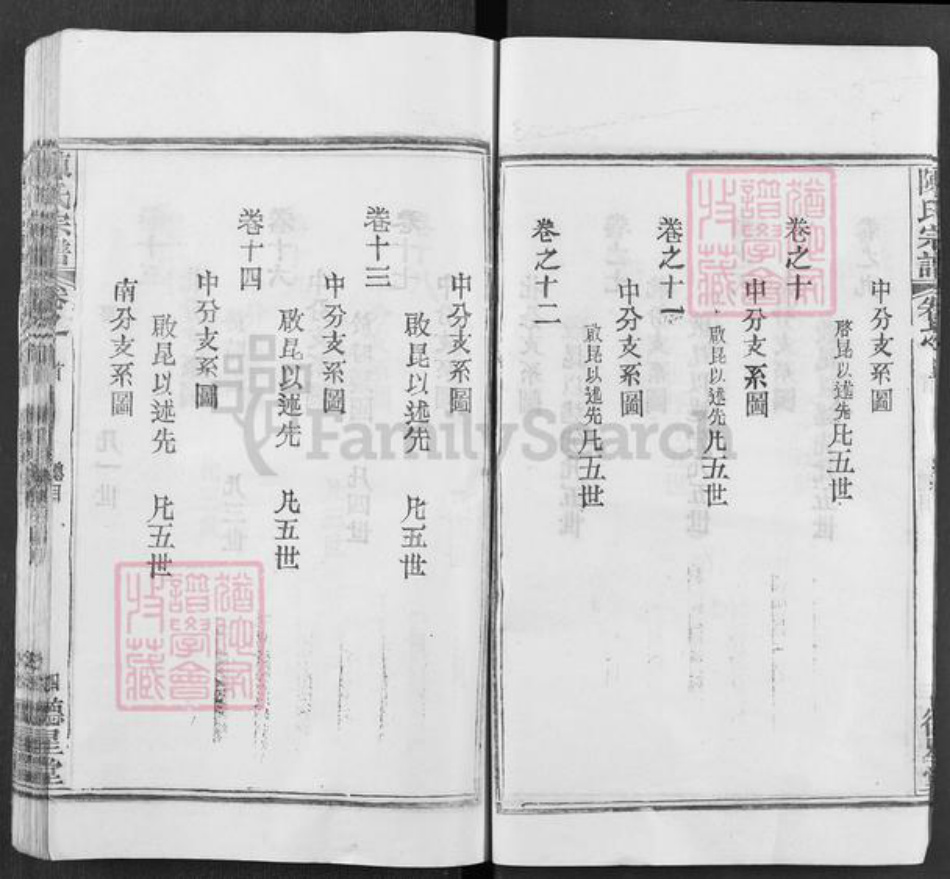 陳氏宗譜
中分支系圖
啓昆以述先凡五世
卷之十
中分支系圖
啟昆以述先凡五世
卷之十一
中分支系圖
啟昆以述先凡五世
卷之十二
中分支系圖
啟昆以述先 凡五世
卷十三
中分支系圖
啟昆以述先 凡五世
卷十四
中分支系圖
啟昆以述先 凡五世
南分支系圖
陳氏宗譜
首
總目
四
德星堂
譜學會
收藏
FamilySearch